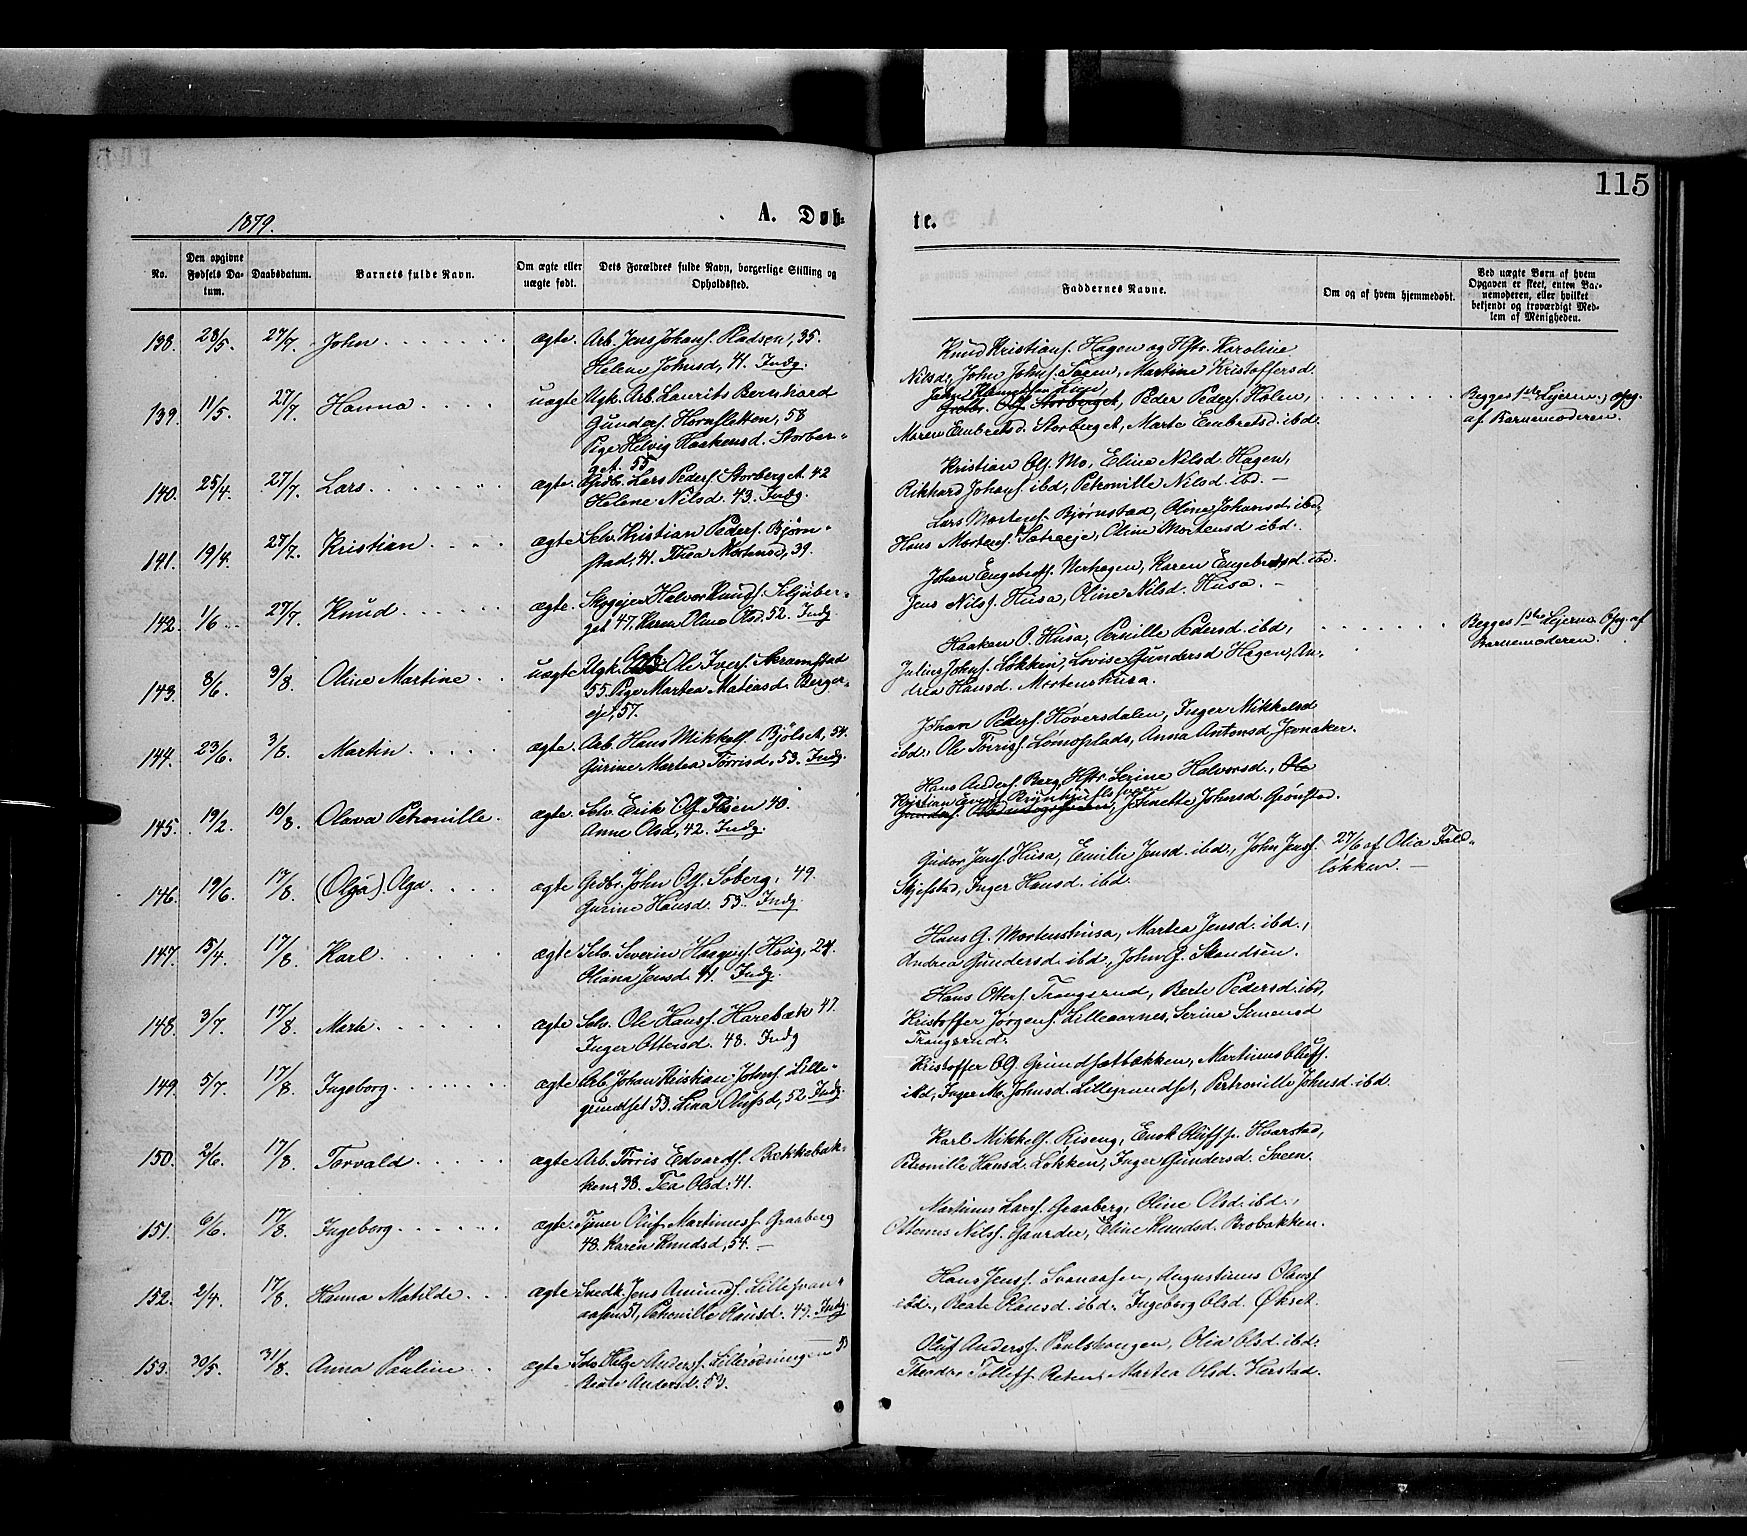 115
1879.
A. Døb-
te.
No.
Den opgivne Fødsels Da-tum.
Daabsdatum.
Barnets fulde Navn.
Om ægte eller uægte født.
Dets Forældres fulde Navn, borgerlige Stilling og Opholdssted.
Faddernes Navne.
Om og af hvem hjemmedøbt.
Ved uægte Børn af hvem Opgaven er skeet, enten Bar-nemoderen, eller hvilket bekjendt og troværdigt Med-lem af Menigheden.
138. 28/5. 27/7. John ægte. Arb. Jens Johans. Pladsen, 35.
Helene Johnsd, 41. Indg.
Knud Kristians. Hagen og Hstr. Karoline
Nilsd., John Johns. Sveen, Martine Kristoffersd.
139. 11/5. 27/7. Hanna uægte Ugk. Arb. Laurits Bernhard
Gunders. Hornsletten, 58
Pige Helvig Haakensd. Storber-
get. 55
Peder Peders. Holen,
Maren Embretsd. Storberget, Marte Embretsd. ibd.
Begges 1ste Lejerm., opg.
af Barnemoderen.
140. 25/4. 27/7. Lars. ægte. Gbr. Lars Peders. Storberget. 42
Helene Nilsd. 43. Indg.
Kristian Ols. Mo, Eline Nilsd. Hagen,
Rikhard Johans. ibd, Petronille Nilsd. ibd. —
141. 19/4. 27/7. Kristian. ægte Selv. Kristian Peders. Bjørn-
stad, 41. Thea Mortensd, 39.
Lars Mortens. Bjørnstad, Oline Johansd. ibd,
Hans Mortens. Sætraeje, Oline Mortensd ibd.
142. 1/6. 27/7. Knud ægte. Skogejer Halvor Knuds. Siljuber-
get 47, Karen Oline Olsd. 52. Indg
Johan Engebrets. Nerhagen, Karen Engebretsd. ibd.
Jens Nilss. Husa, Oline Nilsd. Husa. —
143. 8/6. 3/8. Oline Martine. uægte Ugk. Ole Ivers. Skramstad
55. Pige Martea Matiasd. Berger-
ejet, 57.
Haaken O. Husa, Pernille Pedersd. ibd,
Julius Johns. Løkken, Lovise Gundersd Hagen, An-
drea Hansd. Mortenshusa.
Begges 1ste Lejerm. Opg. af
Barnemoderen.
144. 23/6. 3/8. Martin ægte. Arb. Hans Mikkels. Bjølset, 54.
Gurine Martea Torrisd, 53. Indg.
Johan Peders. Høversdalen, Inger Mikkelsd
ibd. Ole Torriss. Lomoplads, Anna Antonsd Jevnaker.
145. 19/2. 10/8. Olava Petronille. ægte. Selv. Erik Ols. 40.
Anne Olsd, 42. Indg.
Hans Anders. Berg, Hstr. Serine Halvorsd.,
Jeanette Johnsd. Grønstad.
146. 19/6. 17/8. (Olga) Olga ægte Grdbr. John Ols. Søberg. 49.
Gurine Hansd. 53. Indg.
Gudor Jens. Husa, Emilie Jensd. ibd., John Jenss.
Skjefstad, Inger Hansd. ibd.
27/6 af Olia Fald-
løkken. —
147. 15/4. 17/8. Karl. ægte Selv. Severin Haagens. Houg, 24.
Oliana Jensd. 41. Indg.
Hans G. Mortenshusa, Martea Jensd. ibd.,
Andrea Gundersd. ibd, John G. Skandsen.
148. 3/7. 17/8. Marte ægte Selv. Ole Hanss. Harebæk 47.
Inger Ottersd. 48. Indg
Hans Otters. Trangsrud, Berte Pedersd. ibd,
Kristoffer Jørgens. Lilleaarnes, Serine Simensd
Trangsrud.
149. 5/7. 17/8. Ingeborg ægte Arb. Johan Kristian Johns. Lille-
grundset 53. Lina Olufsd, 52 Indg.
Kristoffer O. Grundsætbækken, Martinus Olufs.
ibd, Inger M. Johnsd. Lillegrundset, Pertronille Johnsd. ibd.
150. 2/6. 17/8. Torvald ægte Arb. Torris Edvards. Bækkebak-
ken, 38. Tea Olsd. 41.
Karl Mikkels. Riseng, Enok Olufs. Hvarstad,
Petronille Hansd. Løkken, Inger Gundersd. Sveen.
151. 6/6. 17/8. Ingeborg. ægte. Oluf Martinuss. Graaberg
48. Karen Knudsd, 54. —
Martinus Larss. Graaberg, Oline Olsd. ibd.,
Ottenus Nilss. Gaarder, Eline Knudsd. Brobakken.
152. 2/4. 17/8. Hanna Matilde. ægte Snedk. Jens Amunds. Lillesvan-
aasen 51, Petronille Hansd. 49. Indg.
Hans Jenss. Svanaasen, Augustinus Olavss
ibd., Beate Hansd. ibd., Ingeborg Olsd. Økset.
153. 30/5. 31/8. Anna Pauline ægte Selv. Helge Anderss. Lillerødningen 53
Beate Andersd. 53.
Oluf Anderss. Paulshaugen, Olia Olsd. ibd.
Theodor Tollefs. Reten, Martea Olsd. Herstad.